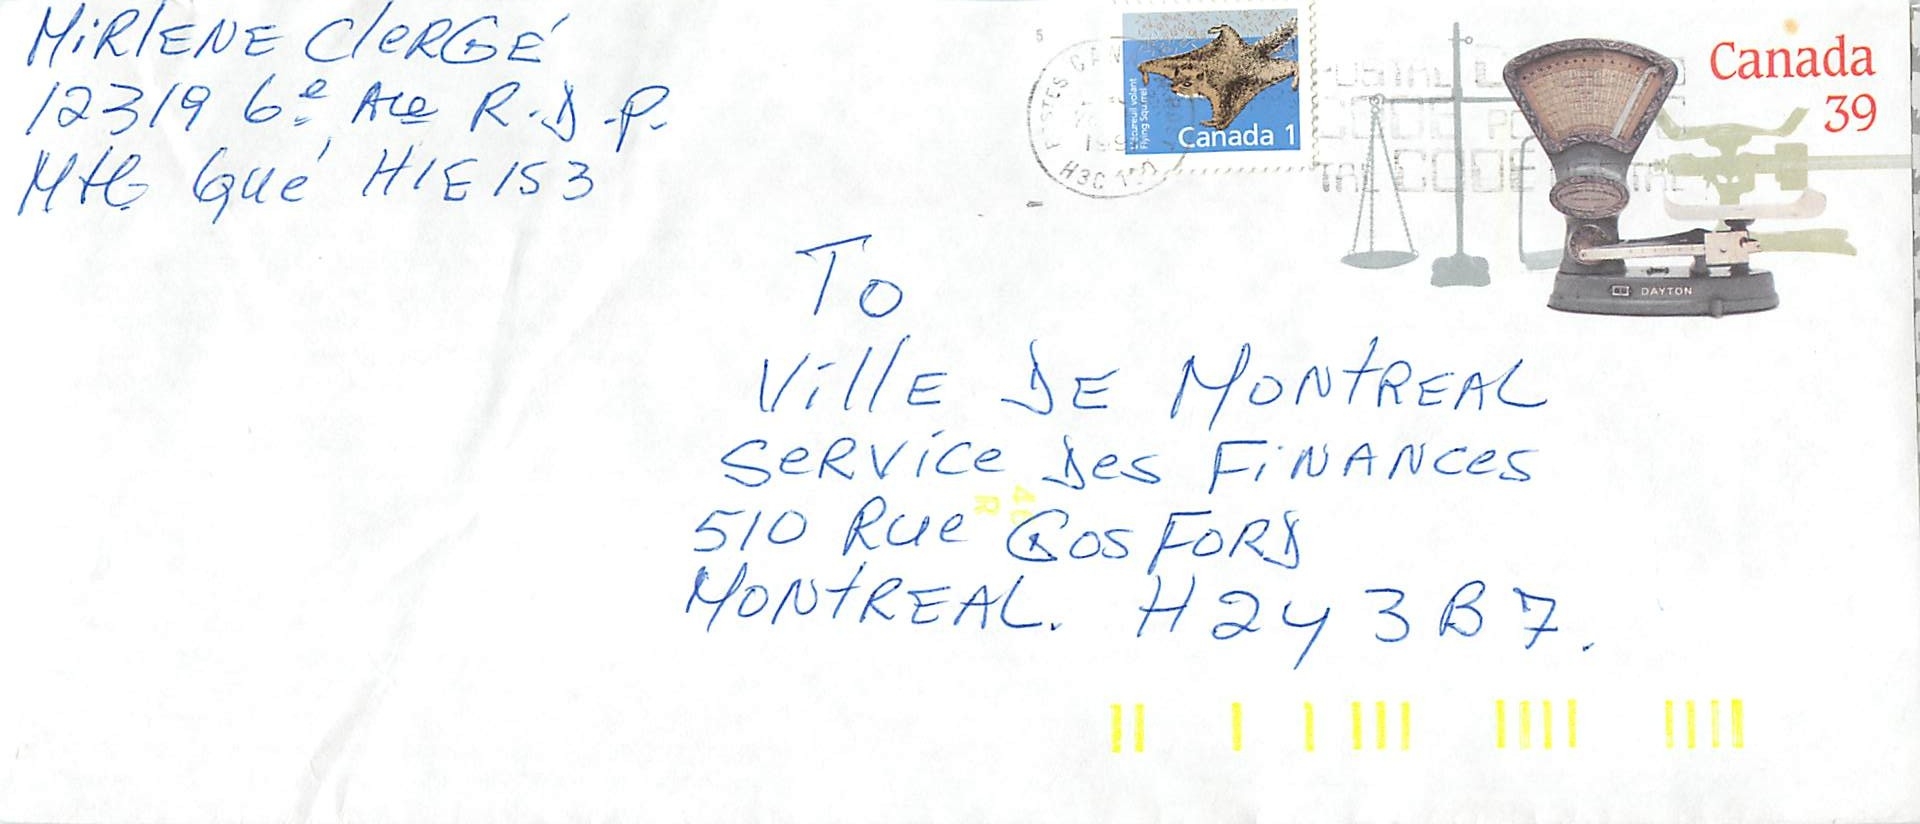 MiRlENE ClERGÉ
12319 6e Ave R.D.P.
Mtl Qué H1E 1S3
L'écureuil volant
Flying Squirrel
Canada 1
H3C
Canada
39
POSTAL
CODE
CODE
DAYTON
To
VillE DE MONtREAL
SeRVice Des FiNANces
510 Rue GosFORD
MONtREAL. H2Y 3B7.